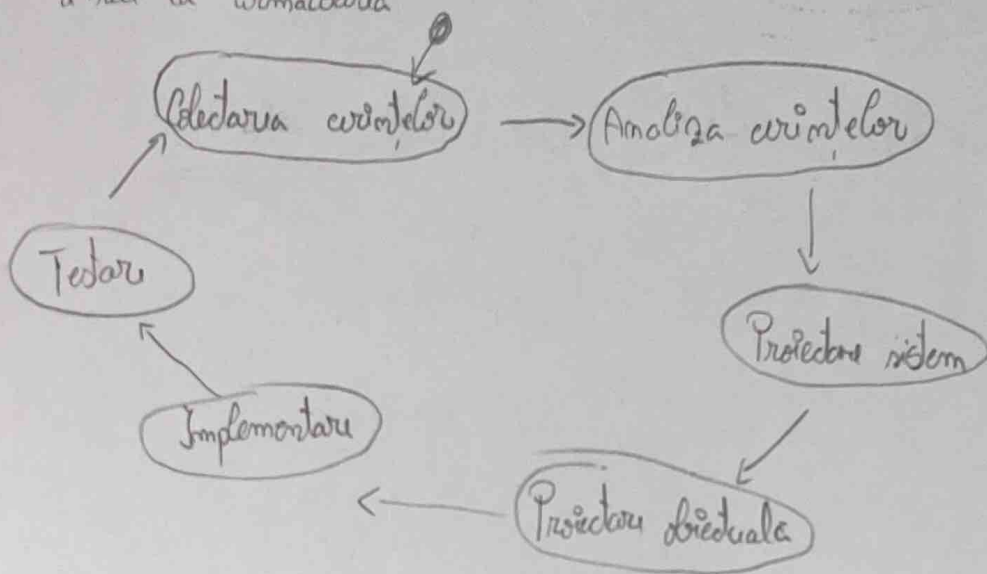 Colectarea cerințelor
Analiza cerințelor
Proiectare sistem
Proiectare obiectuala
Implementare
Testare